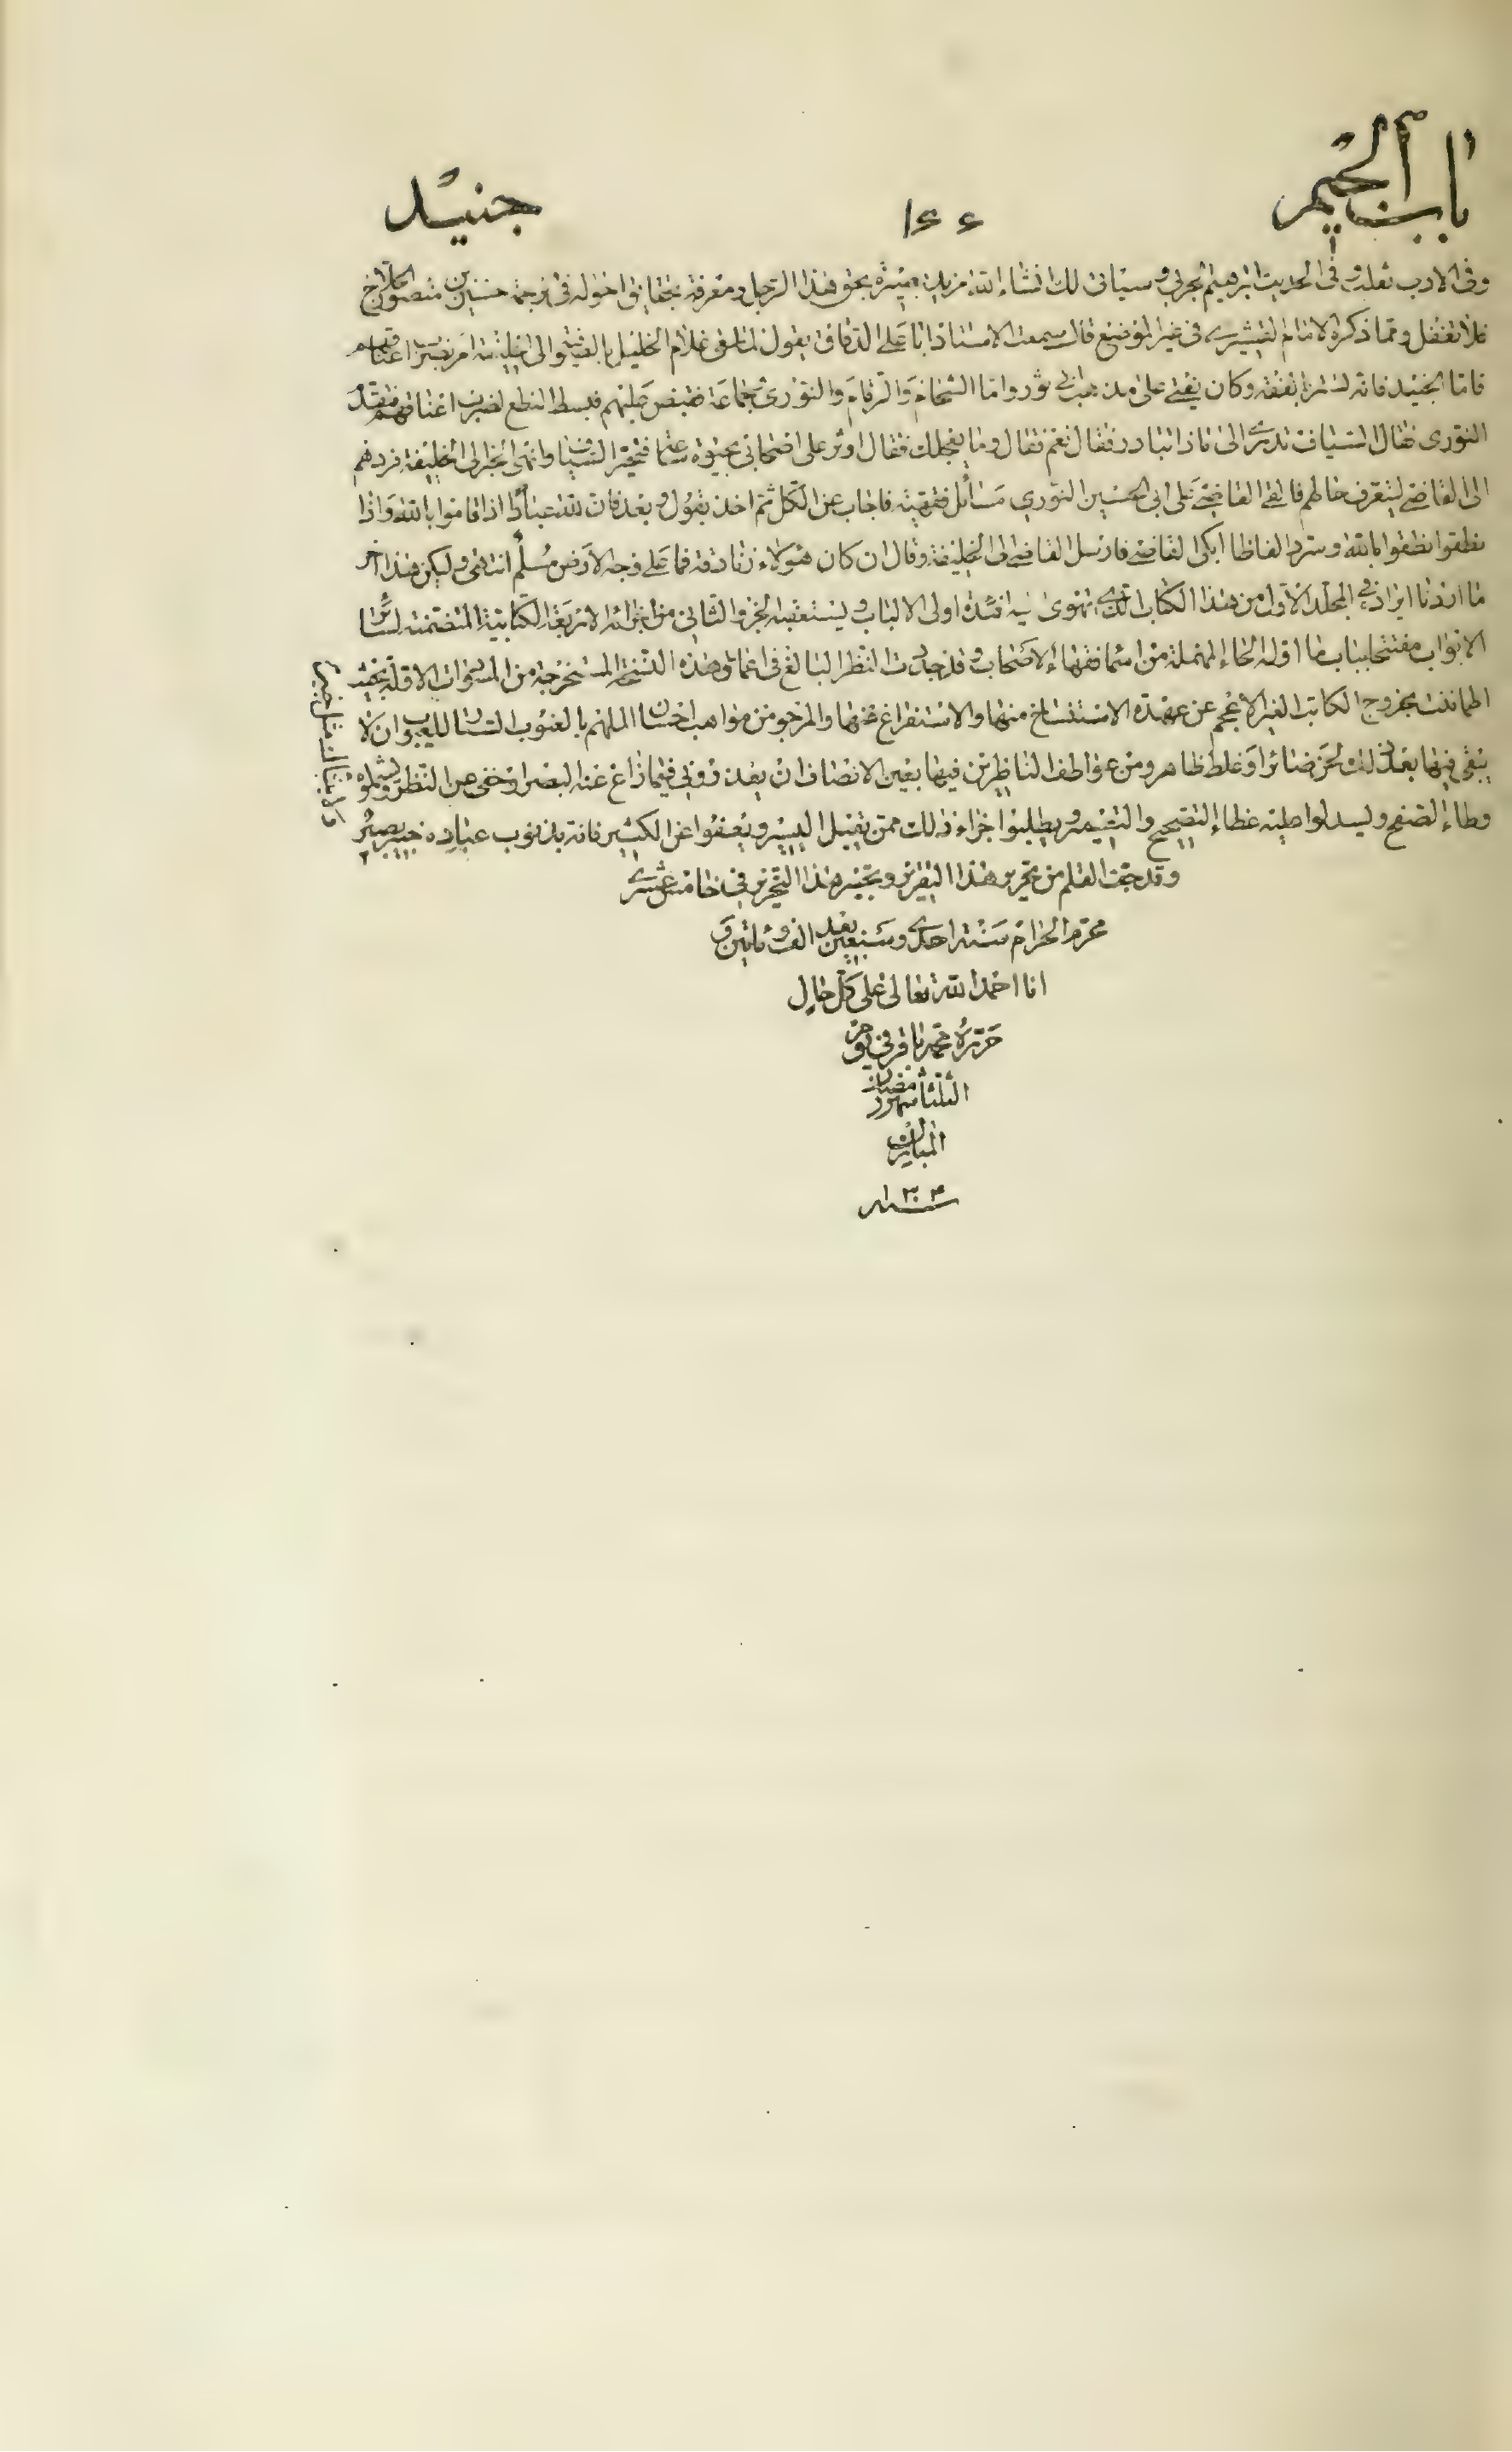 باب الجیم
۱۶۶
جنید
وفی الادب ثعلب وفی الحدیث ابرهیم الحربی وسیاتی لک انشاء الله مزید بصیرة بحق هذا الرجل ومعرفة بحقایق احواله فی ترجمة حسین بن منصور الحلاج
فلا تغفل ومما ذکره الامام القشیری فی غیر الموضع قال سمعت الاستاذ ابا علی الدقاق یقول لما سعی غلام الخلیل بالصوفیة الی الخلیفة امر بضرب اعناقهم
فاما الجنید فانه تستر بالفقه وکان یفتی علی مذهب ابی ثور واما الشحام والرقام والنوری وجماعة فقبض علیهم فبسط النطع لضرب اعناقهم فتقدم
النوری فقال السیاف تدری الی ماذا تبادر فقال نعم فقال وما یعجلک فقال اوثر علی اصحابی بحیوة ساعة فتحیر السیاف وانهی الخبر الی الخلیفة فردهم
الی القاضی لیتعرف حالهم فالقی القاضی علی ابی الحسین النوری مسائل فقهیة فاجاب عن الکل ثم اخذ یقول وبعد فان لله عباداً اذا قاموا قاموا بالله واذا
نطقوا نطقوا بالله وسرد الفاظا ابکی القاضی فارسل القاضی الی الخلیفة وقال ان کان هؤلاء زنادقة فما علی وجه الارض مسلم انتهی ولیکن هذا آخر
ما اردنا ایراده فی المجلد الاول من هذا الکتاب الذی تهوی الیه افئدة اولی الالباب ویستعقبه الجزو الثانی من اجزائه الاربعة الکتابیة المتضمنة لسائر
الابواب مفتتحا بباب ما اوله الحاء المهملة من اسماء فقهاء الاصحاب وقد جددت النظر البالغ فی اعماق هذه النسخة المستخرجة من المسودات الاولة بحیث
اطمأننت بخروج الکاتب الغیر الاعجم عن عهدة الاستنساخ منها والاستفراغ عنها والمرجو من مواهب احسان الملهم بالغیوب الستار للعیوب ان لا
یبقی فیها بعد ذلک لحن ضائر او غلط ظاهر ومن عواطف الناظرین فیها بعین الانصاف ان یعذرونی فیما زاغ عنه البصر او خفی عن النظر ویشملوه
وطاء الصفح ولیسدلوا علیه غطاء التصحیح والتتمیم ویطلبوا جزاء ذلک ممن یقبل الیسیر ویعفو عن الکثیر فانه بذنوب عباده خبیر بصیر
وقد جف القلم من تحریر هذا التقریر وتحبیر هذا التحریر فی خامس عشری
محرم الحرام سنة احدی وسبعین بعد الف ومأتین و
انا احمد الله تعالی علی کل حال
حرره محمد باقر فی یوم
الثلثا شهر رمضان
المبارک
سنه ۱۳۰۴